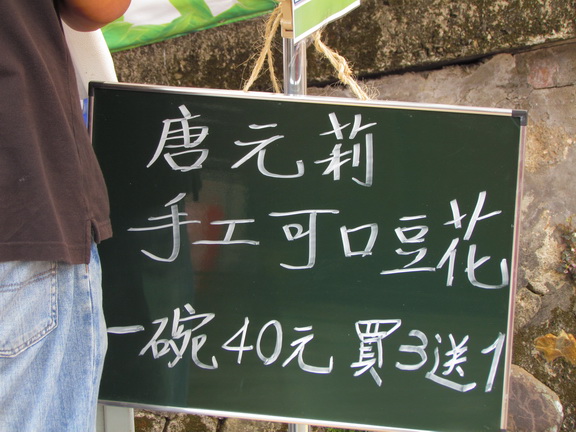 唐元莉
手工可口豆花
一碗40元 買3送1